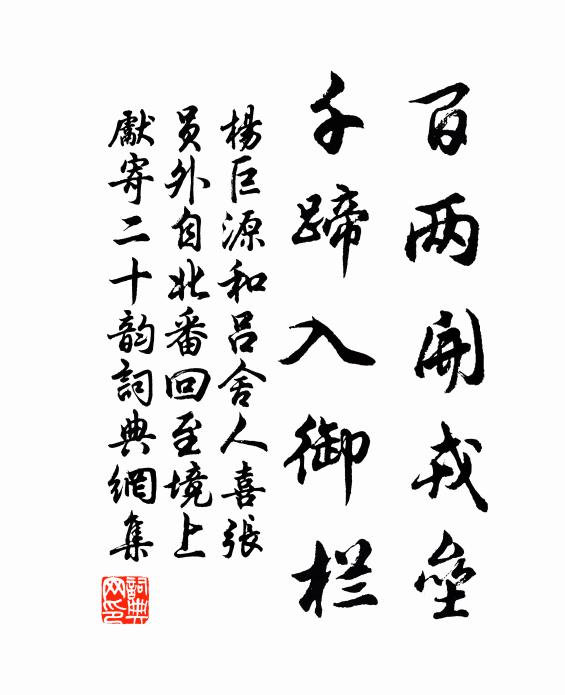 百两開戎壘
千蹄入御栏
楊巨源和吕舍人喜張
員外自北番回至境上
獻寄二十韵詞典網集
詞典
网印